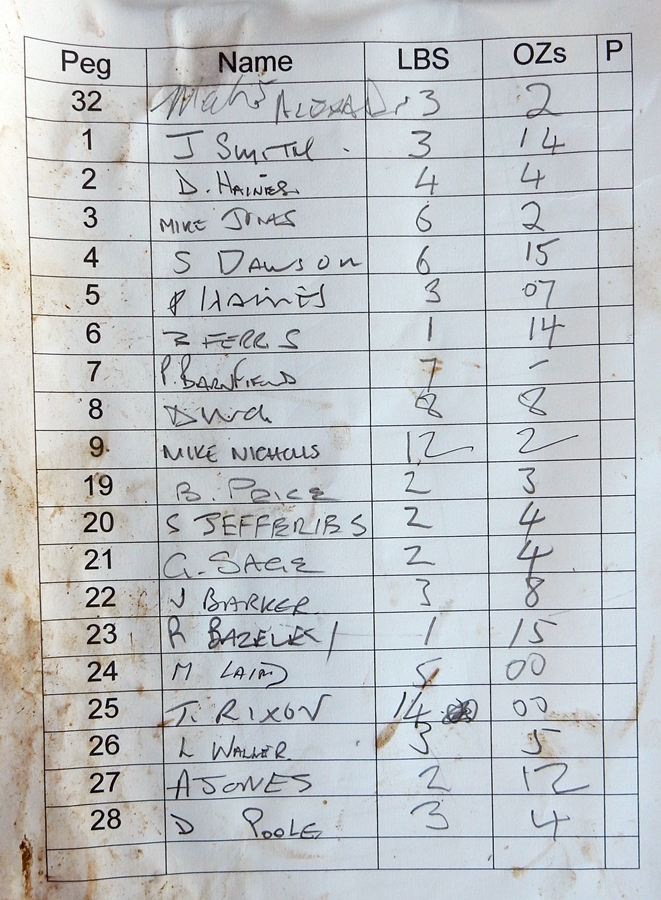 Peg Name LBS OZs P
32 3 2
1 J SMITH 3 14
2 D. HAINES. 4 4
3 MIKE JONES 6 2
4 S DAWSON 6 15
5 P HAINES 3 07
6 FERRIS 1 14
7 P. BARNFIELD 7 -
8 8 8
9 MIKE NICHOLLS 12 2
19 B. PRICE 2 3
20 S JEFFERIES 2 4
21 G. SAGE 2 4
22 J BARKER 3 8
23 R BAZELEY 1 15
24 M LAIRD 5 00
25 T. RIXON 14 00
26 L WALLER 3 5
27 A JONES 2 12
28 D POOLE 3 4